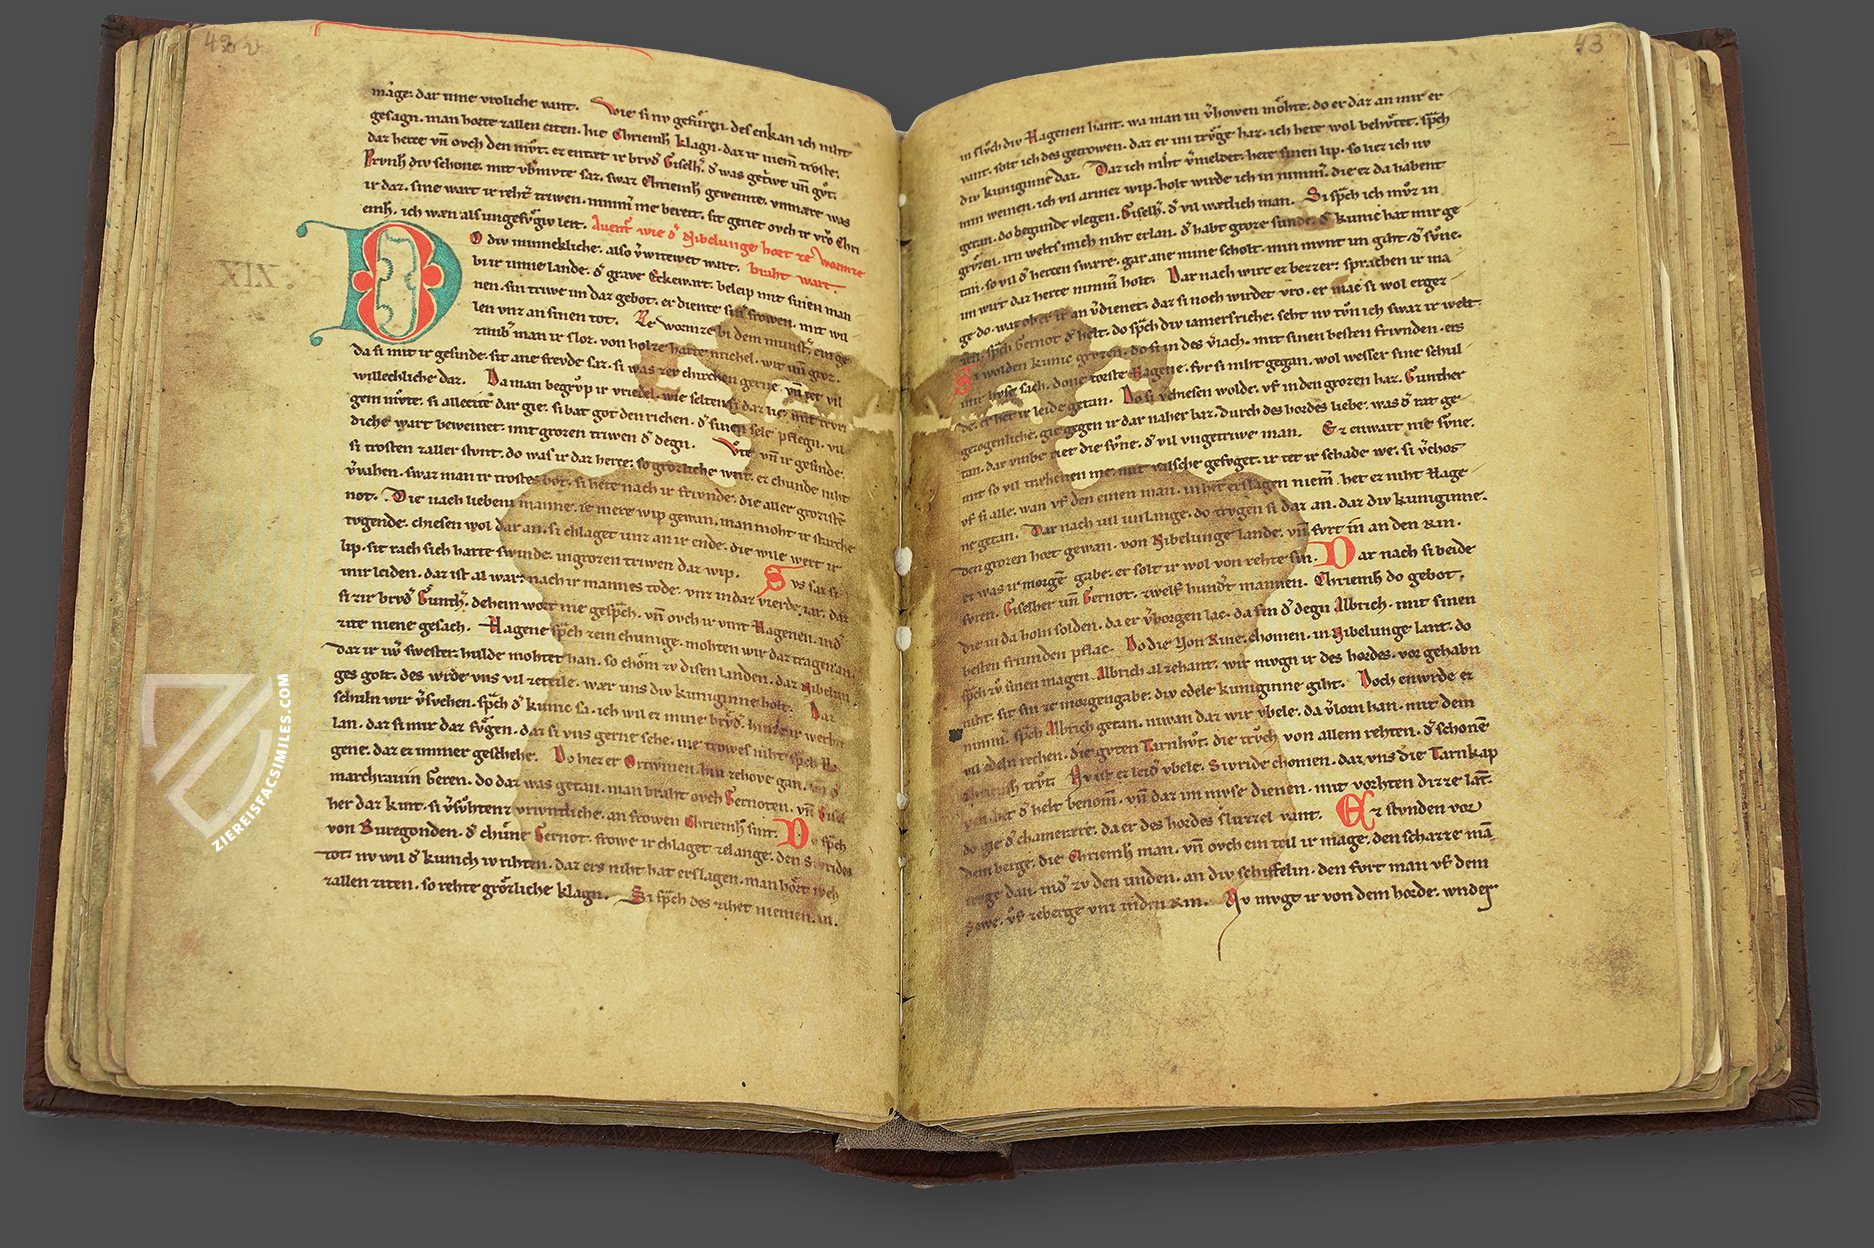 42 v
mage. daz ime vroliche vant. Wie si nv gefüren. des enkan ich niht
gesagn. man horte zallen citen. hie Chriemh klagn. daz ir niem troste.
daz herze vn ovch den mvt. ez entæt ir brvd Giselh. d was getrwe vn gvt.
Prvnh div schone. mit vbmvte saz. swaz Chriemh geweinte. vnmære was
ir daz. sine wart ir reht triwen. nimm me bereit. sit geriet ovch ir vro Chri
emh. ich wæn als ungefvgiv leit. Auent wie d Nibelunge hort ze Wormze
braht wart.
O div minnekliche. also vwitewet wart.
bi ir inne lande. d grave Eckewart. beleip mit sinen man
nen. sin triwe im daz gebot. er diente siner frowen. mit wil
len vnz an sinen tot. Ze Wormze bi dem munst. ein ge
zimb man ir sloz. von holze harte michel. wit vn groz.
da si mit ir gesinde. sit ane frevde saz. si was zer chirchen gerne. vn tet vil
willechliche daz. Da man begrvp ir vriedel. wie selten si daz lie. mit trvri
gem mvte. si allecite dar gie. si bat got den richen. d sinen sele pflegn. vil
diche wart beweinet. mit grozen triwen d degn. Vte vn ir gesinde.
si trosten zaller stvnt. do was ir daz herze. so grozliche wnt. ez chunde niht
vvahen. swaz man ir trostes bot. si hete nach ir friunde. die aller grozisten
not. Die nach liebem manne. ie mere wip gewan. man moht ir starche
tvgende. chiesen wol dar an. si chlaget unz an ir ende. die wile wert ir
lip. sit rach sich harte swinde. in grozen triwen daz wip. Svs saz si
mit leiden. daz ist al war. nach ir mannes tode. vnz in daz vierde iar. daz
si zir brvd Gunth. dehein wort nie gesprch. vn ovch ir vint Hagenen. ind
zite niene gesach. Hagene sprch zem chunige. mohten wir daz tragen an.
daz ir iwr swester. hulde mohtet han. so chom zv disen landen. daz Nibelun
ges golt. des wrde vns vil zeteile. wær uns div kuniginne holt. Daz
schuln wir vsvchen. sprch d kunic sa. ich wil ez mine brvd. hinze ir werbn
lan. daz si mir daz fvgen. daz si vns gerne sehe. ine trowes niht. sprch Ha
gene. daz ez immer geschehe. Do hiez er Ortwinen. hin zehove gan. vn d
marchravin Geren. do daz was getan. man braht ovch Gernoten. vn Gisel
her daz kint. si vsvhtenz vriuntliche. an frowen Chriemh sint. Do sprch
von Buregonden. d chüne Gernot. frowe ir chlaget zelange. den Sivrides
tot. nv wil d kunich iv rihten. daz ers niht hat erslagen. man hort iwch
zallen ziten. so rehte grözliche klagn. Si sprch des zihet niemen in.
XIX
43
in slvch div Hagenen hant. wa man in vhowen mohte. do er daz an mir er
vant. solt ich des getrowen. daz er im trvge haz. ich hete wol behvtet. sprch
div kuniginne daz. Daz ich niht vmeldet. hete sinen lip. so liez ich nv
min weinen. ich vil armez wip. holt wirde ich in nimm. die ez da habent
getan. do begunde vlegen. Giselh. d vil wætlich man. Si sprch ich mvz in
grvzen. irn welts mich niht erlan. d habt groze sunde. d kunic hat mir ge
tan. so vil d herzen swære. gar ane mine scholt. min mvnt im giht d svne.
im wirt daz herze nimm holt. Dar nach wirt ez bezzer. sprachen ir ma
ge do. waz ob er ir an vdienet. daz si noch wirdet vro. er mac si wol erge
zen. sprch Gernot d helt. do sprch div iamersriche. seht nv tvn ich swaz ir welt.
Si wolden kunic grvzen. do si in des viach. mit sinen besten frivnden. ers
inir hvse sach. done torste Hagene. fvr si niht gegan. wol wesser sine schul
de. er het ir leide getan. Do si vchiesen wolde. vf in den grozen haz. Gunther
gezogenliche. gie gegen ir dar naher baz. durch des hordes liebe. was d rat ge
tan. dar vmbe riet die svne. d vil vngetriwe man. Ez enwart nie svne.
mit so vil træhenen me. mit valsche gefvget. ir tet ir schade we. si vchos
vf si alle. wan vf den einen man. in het erslagen niem. het ez niht Hage
ne getan. Dar nach vil unlange. do trvgen si daz an. daz div kuniginne.
den grozen hort gewan. von Nibelunge lande. vn fvrt in an den Rin.
ez was ir morgen gabe. er solt ir wol von rehte sin. Dar nach si beide
fvren. Giselher vn Gernot. zwelf hundt mannen. Chriemh do gebot.
die in da holn solden. da er vborgen lac. da sin d degn Albrich. mit sinen
besten friunden pflac. Do die von Rine. chomen. in Nibelunge lant. do
sprch zv sinen magen. Albrich al zehant. wir mvgn ir des hordes. vor gehabn
niht. sit sin ze morgengabe. div edele kuniginne giht. Doch enwrde ez
nimm. sprch Albrich getan. niwan daz wir vbele. da vlorn han. mit dem
vil edeln rechen. die gvten Tarnhvt. die trvch von allem rehten. d schonen
Chriemh trvt. Nv ist ez leid vbele. Sivride chomen. daz vns die Tarnkap
pen het d helt benom. vn daz im mvse dienen. mit vorhten dizze lant.
do gie d chameræere. da er des hordes slvzzel vant. Ez stvnden vor
dem berge. die Chriemh man. vn ovch ein teil ir mage. den schatz man
trvge dan. nid zv den unden. an div schiffelin. den fvrt man vf dem
sewe. vf zeberge vnz inden Rin. Nv mvgt ir von dem horde. wnder
ZIEREISFACSIMILES.COM